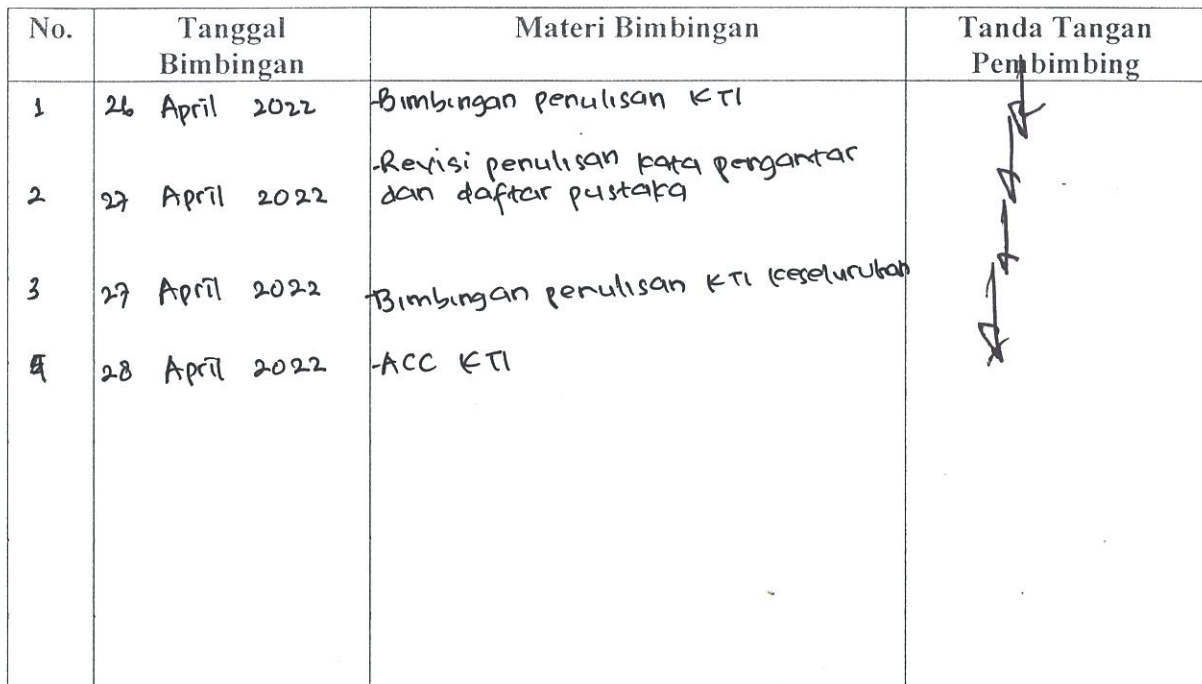 No. Tanggal Bimbingan Materi Bimbingan Tanda Tangan Pembimbing
1 26 April 2022 -Bimbingan penulisan KTI
-Revisi penulisan kata pengantar
2 27 April 2022 dan daftar pustaka
3 27 April 2022 -Bimbingan penulisan KTI keseluruhan
4 28 April 2022 -ACC KTI